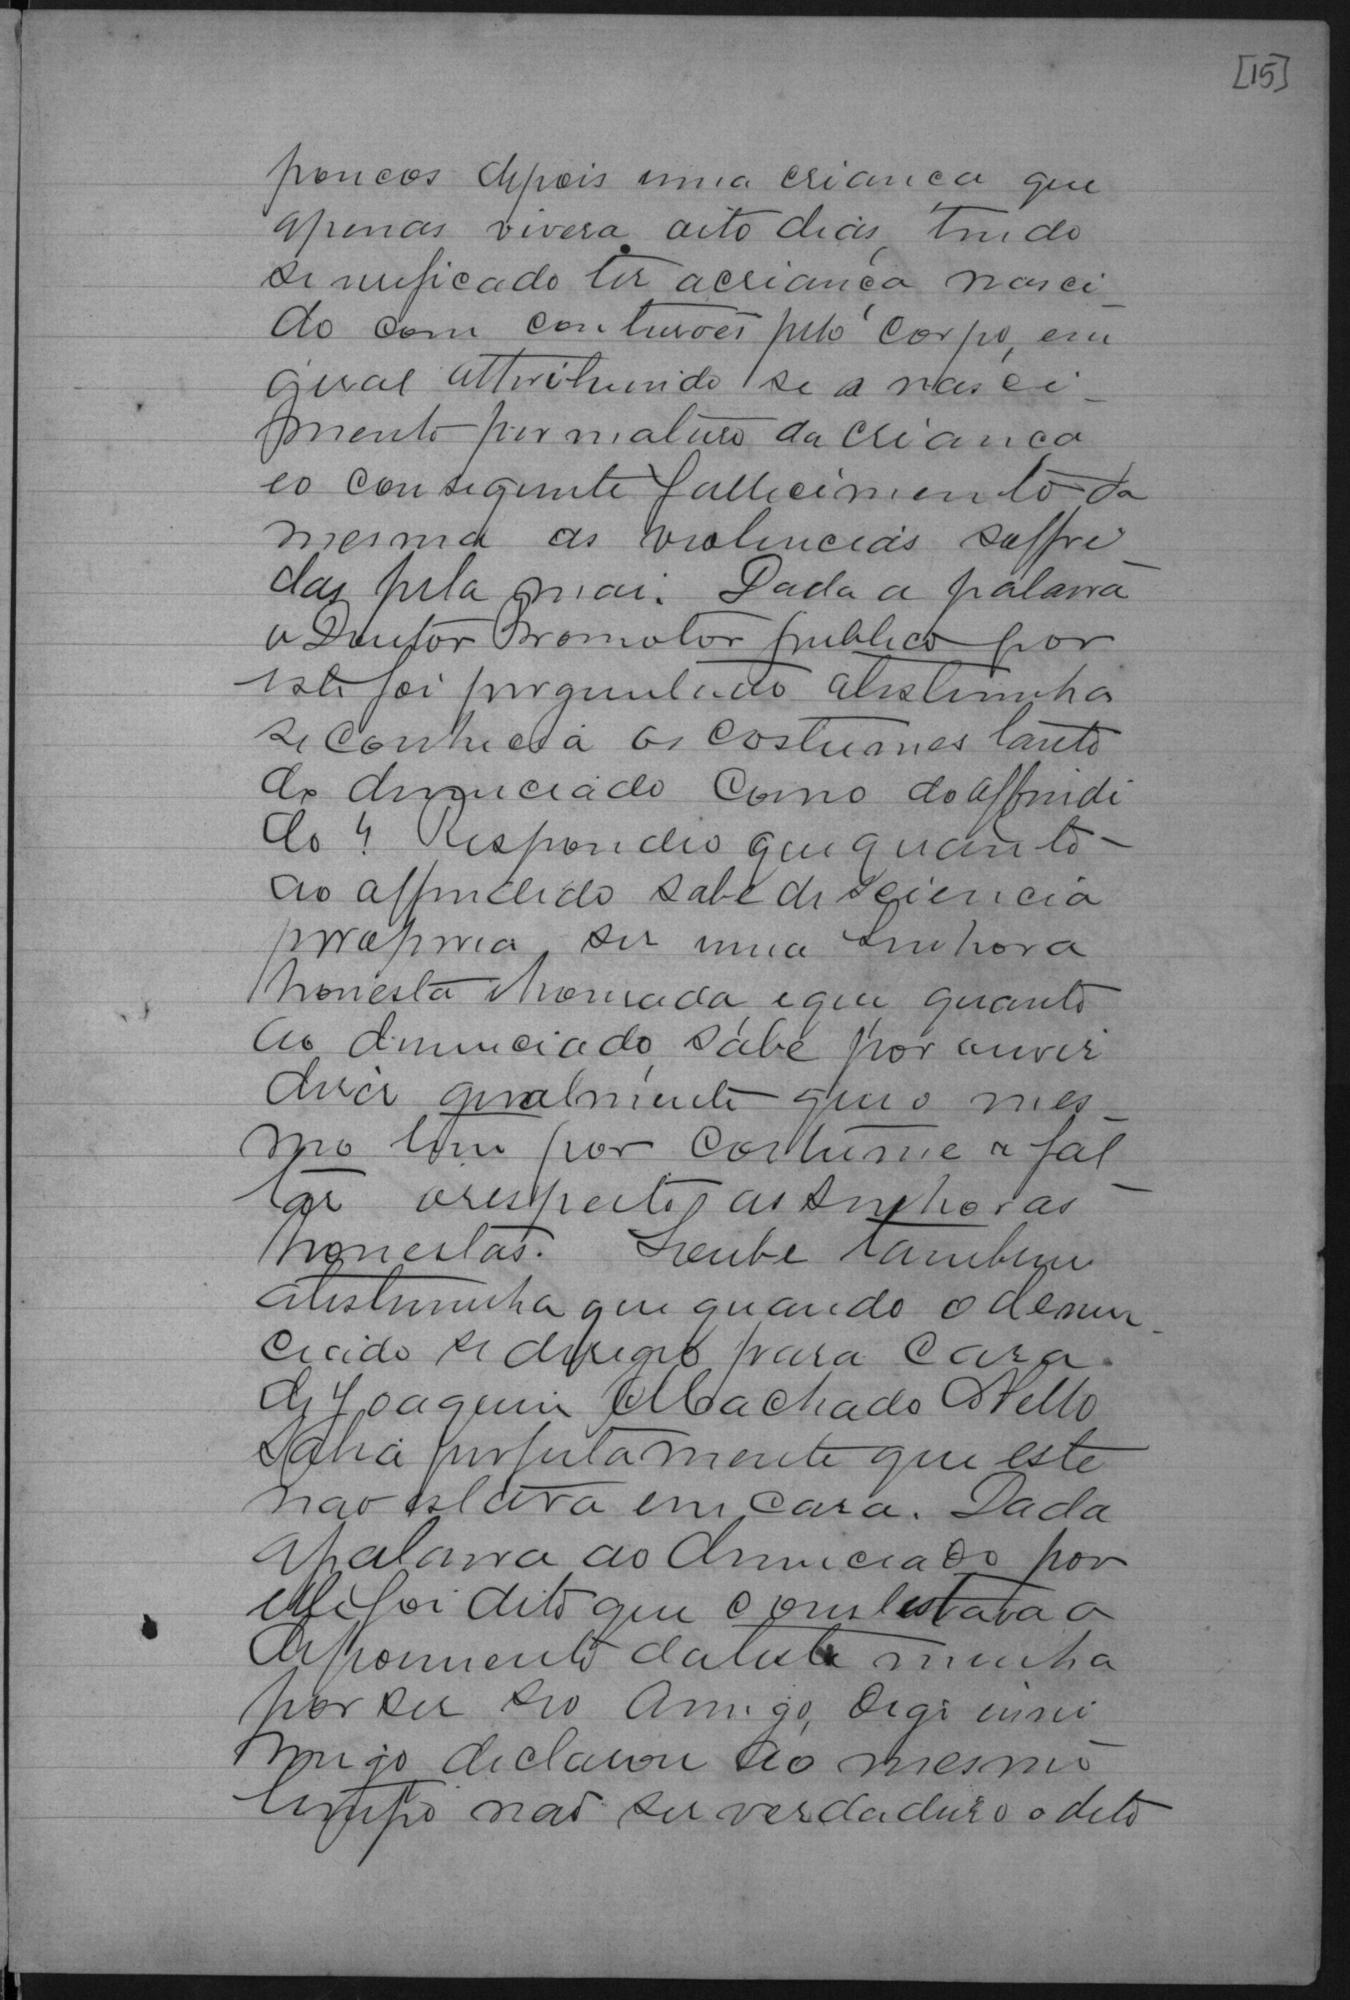 [15]
poucos depois uma criança que
apenas vivera oito dias, tendo
se verificado ter a criança nasci-
do com contusões pelo corpo, em
geral attribuindo se a nasci-
mento permaturo da criança
e o consequente fallecimento da
mesma as violencias soffri-
das pela mai. Dada a palavra
o Doutor Promotor publico por
este foi perguntado atestimunha
se conhecia os costumes tanto
do denunciado como do offendi
do? Respondeo que quanto
ao offendido sabe de sciencia
propria ser uma Senhora
honesta e honrada, e que quanto
ao denunciado, sabe por ouvir
dizer geralmente que o mes-
mo tem por costume a fal-
tar o respeito as Senhoras
honestas. Soube tambem
atestimunha que quando o denun-
ciado se derigio para caza
de Joaquim Machado Mello
sabia perfeitamente que este
não estava em caza. Dada
apalavra ao denunciado por
elle foi dito que contestava o
depoimento da testemunha
por ser seo amigo, digo inni
migo declarou ao mesmo
tempo não ser verdadeiro o dito